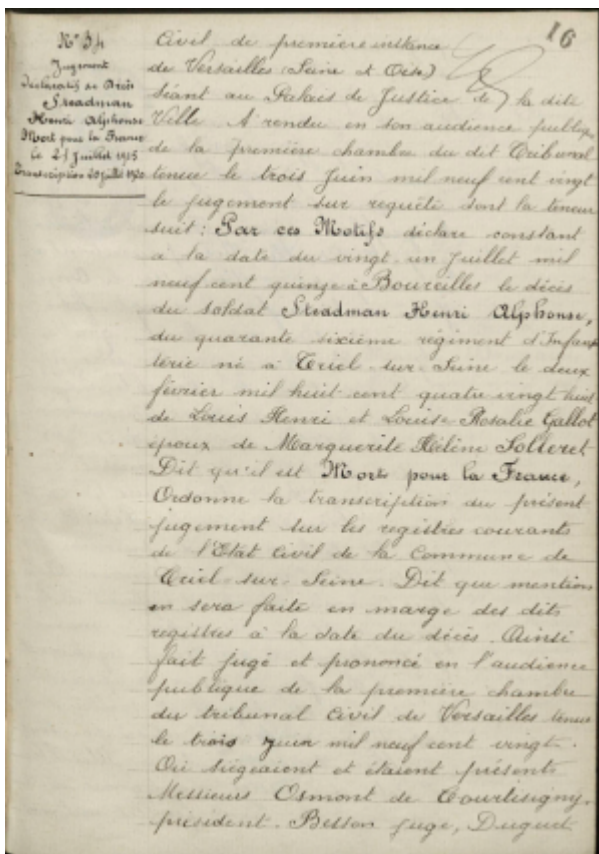 16
N° 34
Jugement
déclaratif de Décès
Steadman
Henri Alphonse
Mort pour la France
le 21 Juillet 1915
Transcription 20 Juillet 1920
Civil de première instance
de Versailles (Seine et Oise)
Séant au Palais de Justice de la dite
Ville A rendu en son audience publique
de la première chambre du dit Tribunal
tenue le trois Juin mil neuf cent vingt
le jugement sur requête dont la teneur
suit : Par ces Motifs déclare constant
à la date du vingt un Juillet mil
neuf cent quinze à Boureilles le décès
du soldat Steadman Henri Alphonse,
du quarante sixième régiment d'Infan
terie né à Triel-sur-Seine le deux
février mil huit cent quatre vingt huit
de Louis Henri et Louise Rosalie Gallot
époux de Marguerite Hélène Solleret
Dit qu'il est Mort pour la France,
Ordonne la transcription du présent
jugement sur les registres courants
de l'Etat Civil de la Commune de
Triel-sur-Seine. Dit que mention
en sera faite en marge des dits
registres à la date du décès. Ainsi
fait jugé et prononcé en l'audience
publique de la première chambre
du tribunal Civil de Versailles tenue
le trois Juin mil neuf cent vingt.
Où siégeaient et étaient présents
Messieurs Osmont de Courtisigny,
président. Besson Juge, Duguet